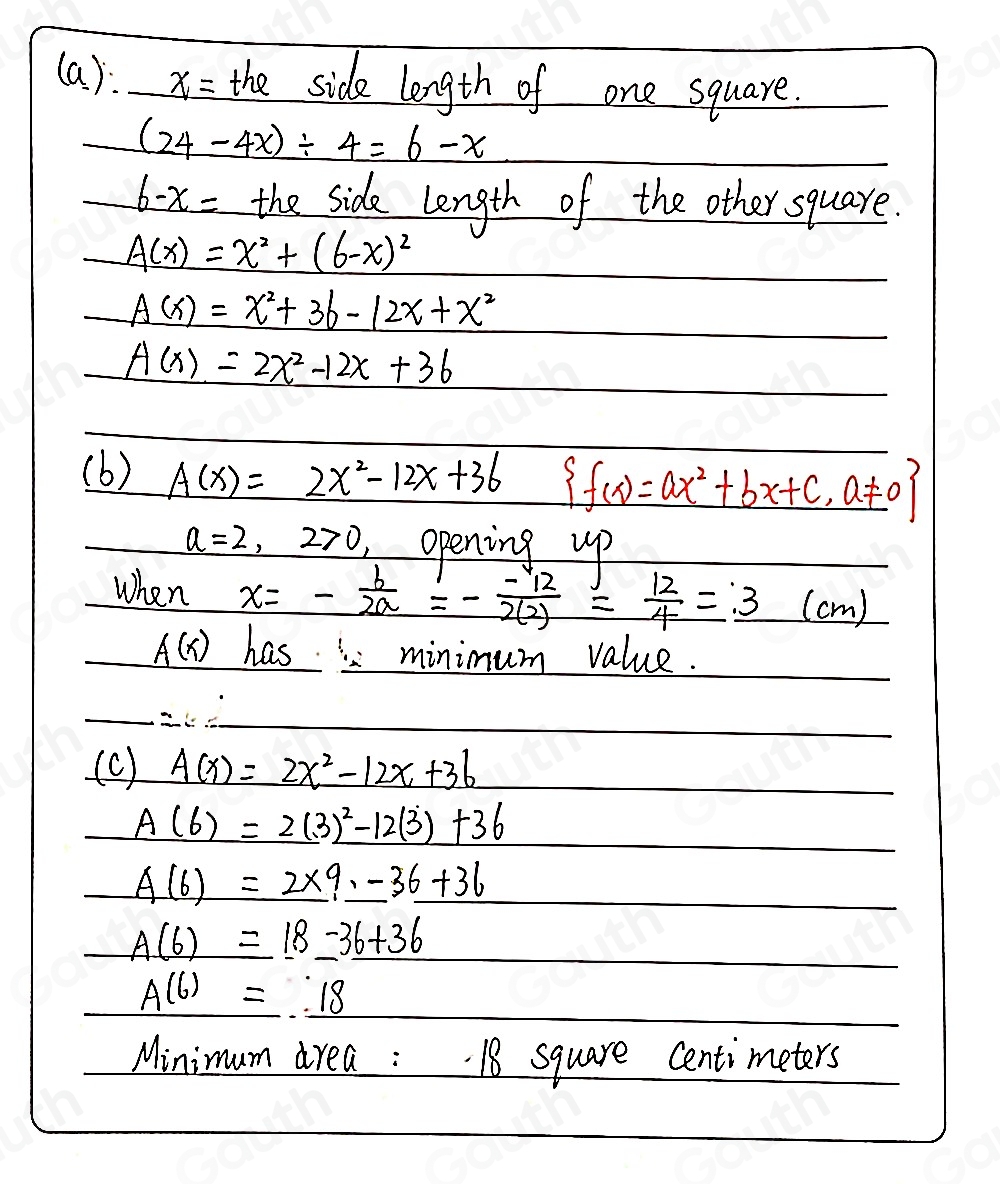 (a): x = the side length of one square.
(24 - 4x) ÷ 4 = 6 - x
6-x = the side length of the other square.
A(x) = x² + (6-x)²
A(x) = x² + 36 - 12x + x²
A(x) = 2x² - 12x + 36
(b) A(x) = 2x² - 12x + 36 {f(x) = ax² + bx + c, a≠0}
a=2, 2>0, opening up
When x = - b/2a = - -12/2(2) = 12/4 = 3 (cm)
A(x) has minimum value.
(c) A(x) = 2x² - 12x + 36
A(6) = 2(3)² - 12(3) + 36
A(6) = 2×9 - 36 + 36
A(6) = 18 - 36 + 36
A(6) = 18
Minimum area : 18 square centimeters